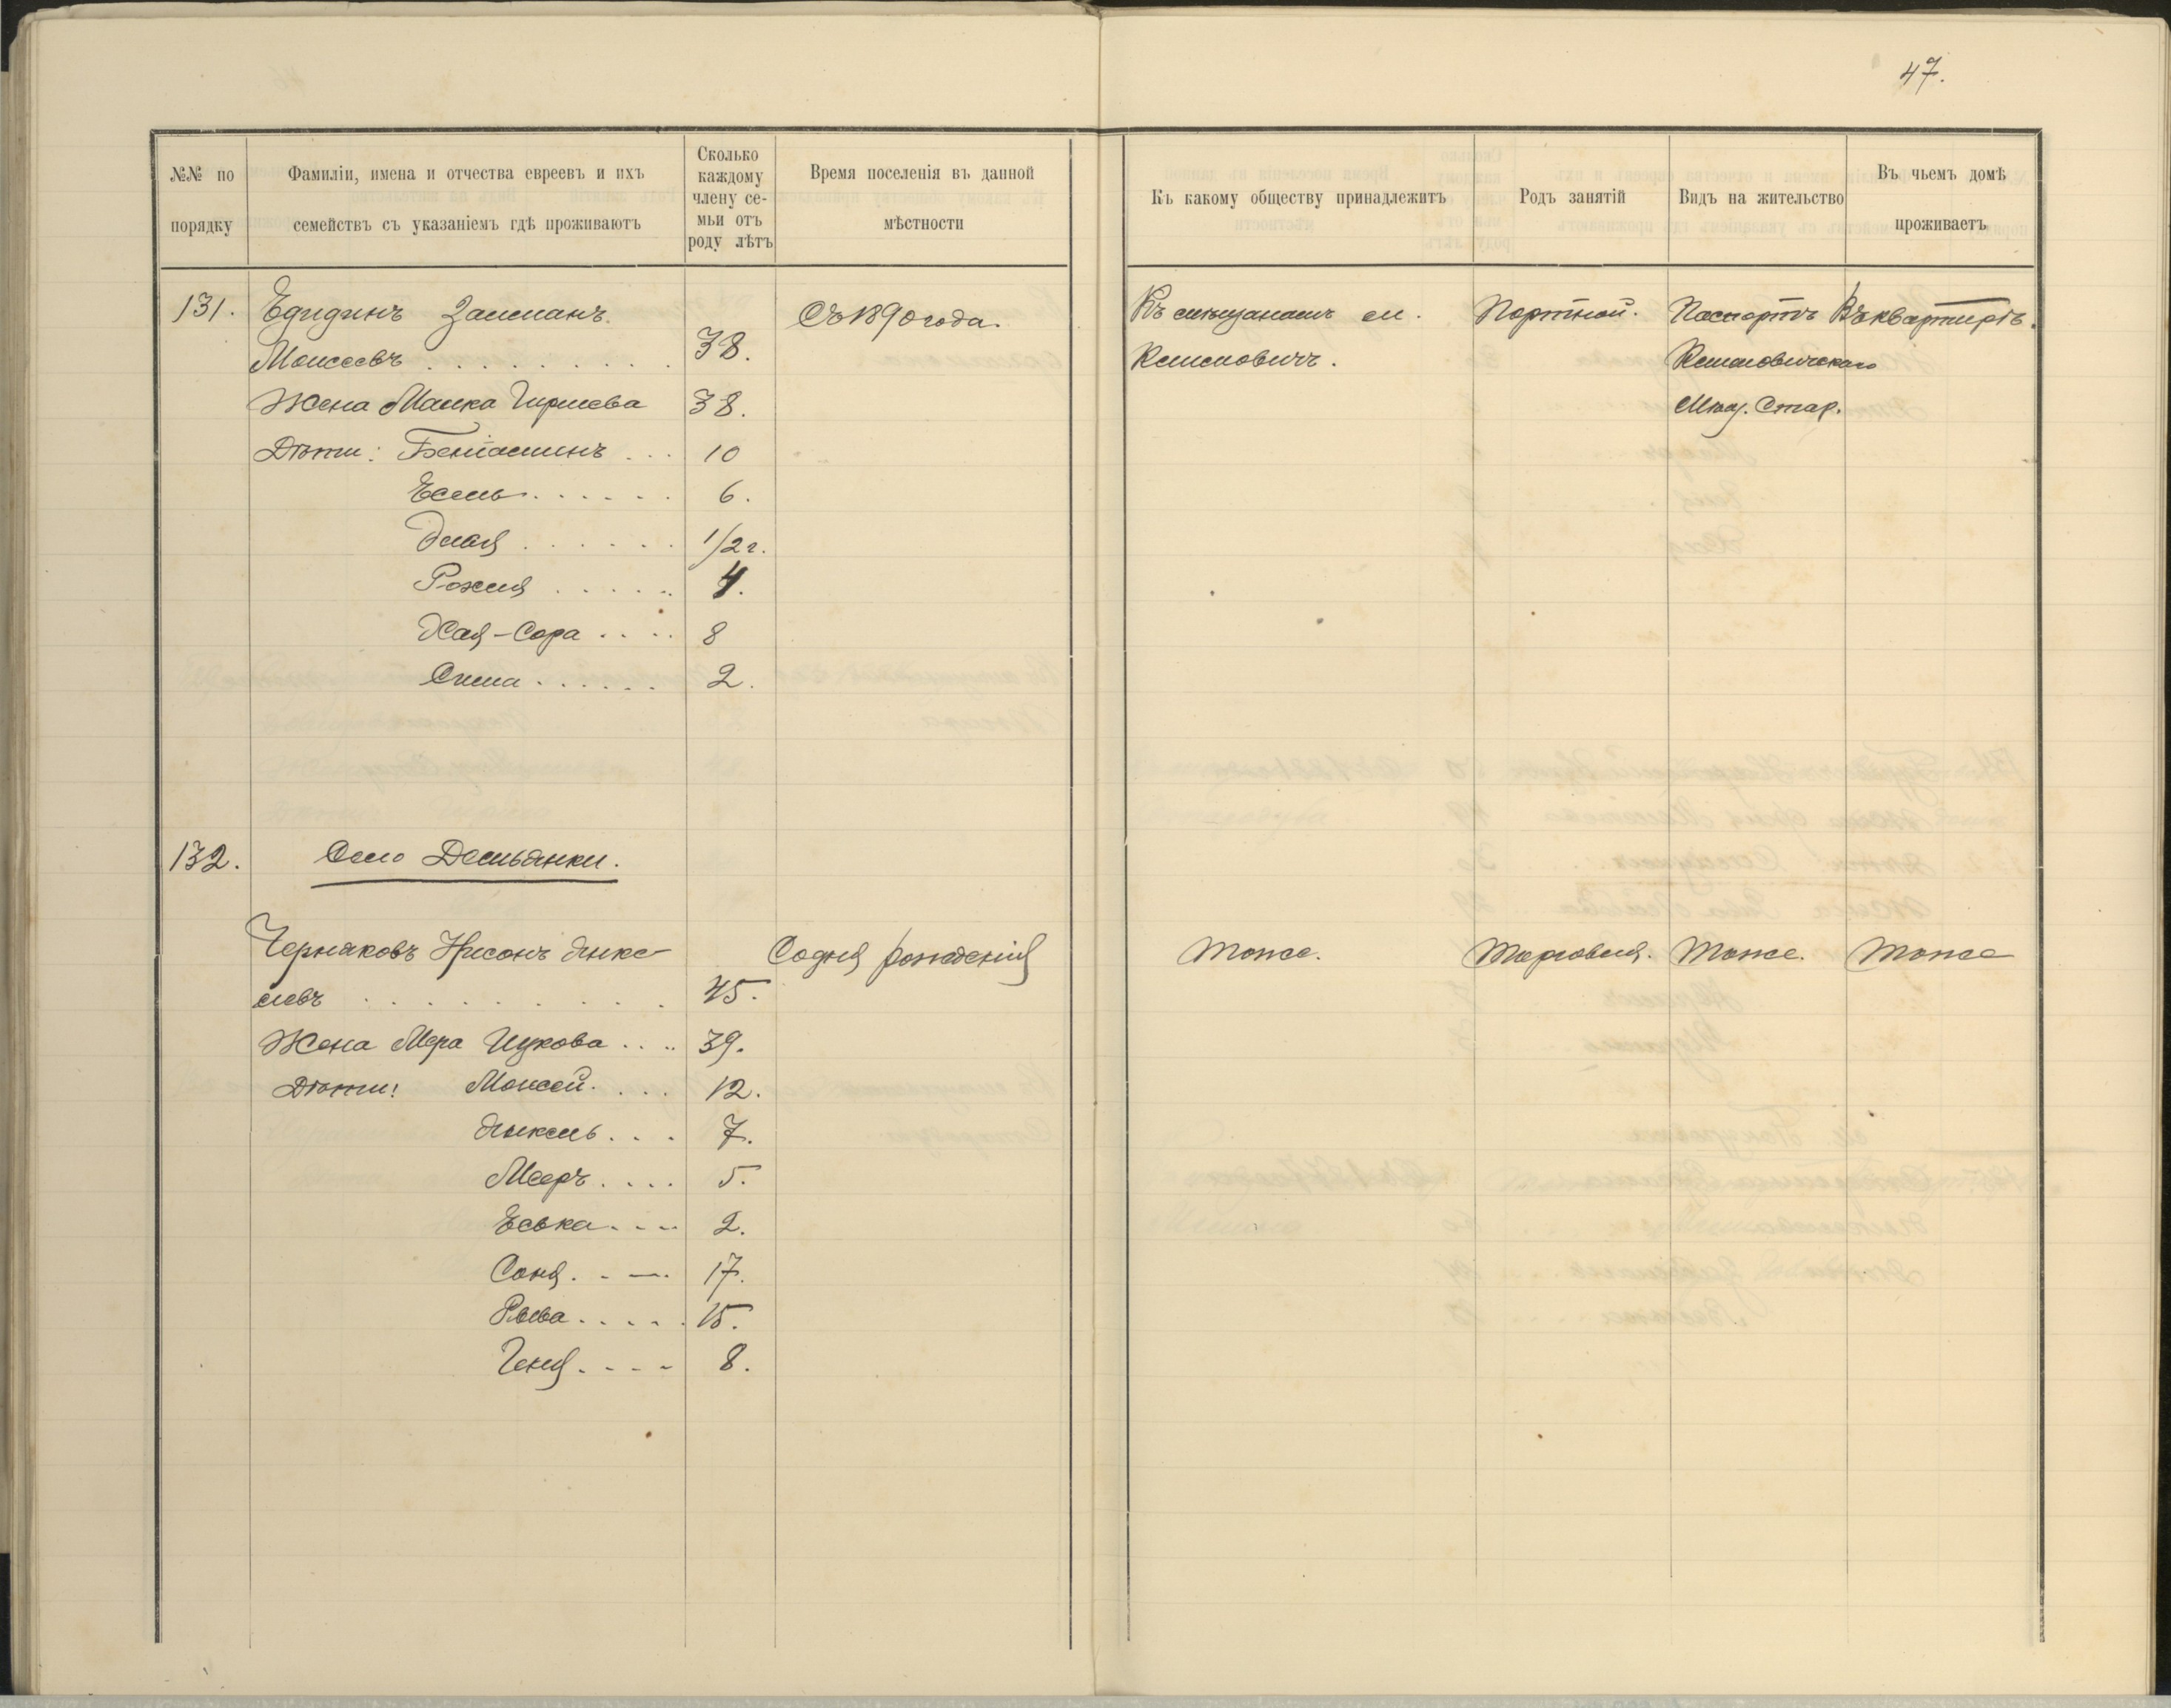 47.
№№ по
порядку
Фамиліи, имена и отчества евреевъ и ихъ
семействъ съ указаніемъ гдѣ проживаютъ
Сколько
каждому
члену се-
мьи отъ
роду лѣтъ
Время поселенія въ данной
мѣстности
Къ какому обществу принадлежитъ
Родъ занятій
Видъ на жительство
Въ чьемъ домѣ
проживаетъ
131. Едидинъ Залманъ. Съ 1890 года. Къ мѣщанамъ м. Портной. Паспортъ Въ квартирѣ.
Моисеевъ . . . . . . . . . 38. Климовичъ. Климовическаго
Жена Малка Гиршева 38. Мѣщ. Стар.
Дѣти: Беніаминъ . . . 10
Есель . . . . . . 6.
Элая . . . . . . 1/2 г.
Рохля . . . . . 4.
Хая-Сора . . . . 8
Сима . . . . . . 2.
132. Село Демьянки.
Черняковъ Нисонъ Янке- Содня рожденія Тоже. Торговля. Тоже. Тоже
левъ . . . . . . . . . 45.
Жена Мера Ицкова . . . . 39.
Дѣти: Моисей. . . . 12.
Янкель . . . 7.
Мееръ . . . . 5.
Еська . . . . 2.
Соня . . . 17.
Рыва . . . . . 15.
Геня . . . . 8.